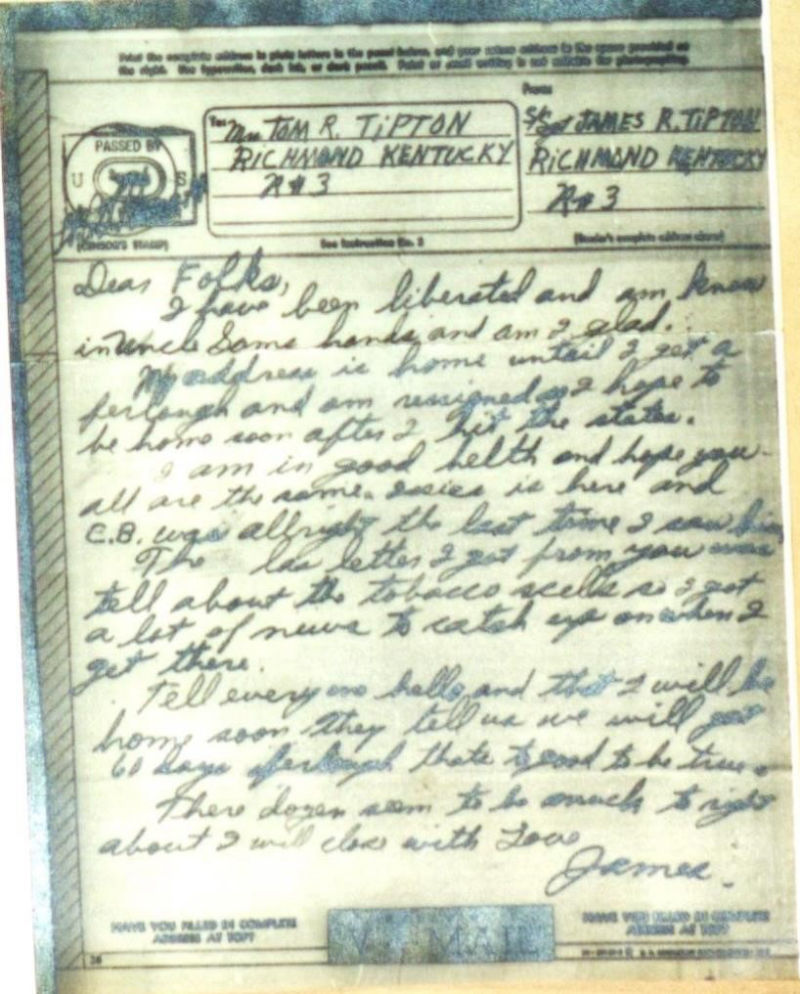 Print the complete address in plain letters in the panel below, and your return address in the space provided on
the right. Use typewriter, dark ink, or dark pencil. Faint or small writing is not suitable for photographing.
To:
From
Mr TOM R. TIPTON
RICHMOND KENTUCKY
R#3
S/Sgt JAMES R. TIPTON
RICHMOND KENTUCKY
R#3
PASSED BY
U S
(CENSOR'S STAMP)
See Instruction No. 2
(Sender's complete address above)
Dear Folks,
I have been liberated and am know
in Uncle Sams hands and am I glad.
My address is home untail I get a
ferlough and am ressigned as I hope to
be home soon after I hit the states.
I am in good helth and hope you
all are the same. is here and
C.B. was allright the last time I saw him
The las letter I got from you was
tell about the tobacco so I got
a lot of news to catch up on when I
get there.
Tell every one hello and that I will be
home soon they tell us we will get
60 days ferlough thats to good to be true.
There dozen seem to be much to right
about I will close with Love
James.
HAVE YOU FILLED IN COMPLETE
ADDRESS AT TOP?
V-MAIL
HAVE YOU FILLED IN COMPLETE
ADDRESS AT TOP?